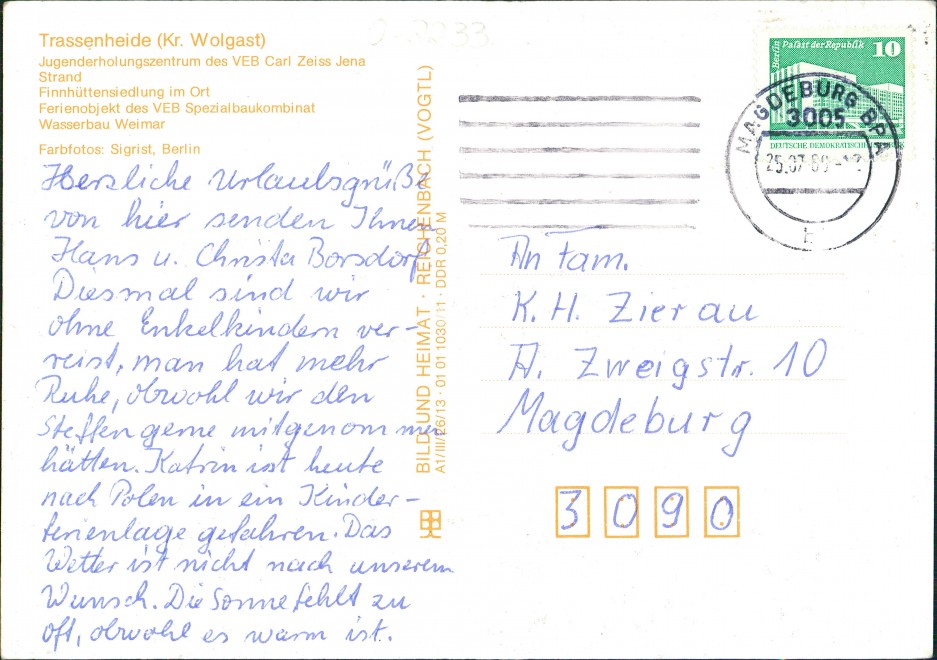 Trassenheide (Kr. Wolgast)
Jugenderholungszentrum des VEB Carl Zeiss Jena
Strand
Finnhüttensiedlung im Ort
Ferienobjekt des VEB Spezialbaukombinat
Wasserbau Weimar
Farbfotos: Sigrist, Berlin
Herzliche Urlaubsgrüße
von hier senden Ihnen
Hans u. Christa Borsdorf
Diesmal sind wir
ohne Enkelkindern ver-
reist, man hat mehr
Ruhe, obwohl wir den
Steffen gerne mitgenommen
hätten. Katrin ist heute
nach Polen in ein Kinder-
ferienlage gefahren. Das
Wetter ist nicht nach unserem
Wunsch. Die Sonne fehlt zu
oft, obwohl es warm ist.
BILD UND HEIMAT · REICHENBACH (VOGTL)
A1/III/26/13 · 01 01 1030/11 · DDR 0,20 M
Berlin
Palast der Republik
10
DEUTSCHE DEMOKRATISCHE
MAGDEBURG BPA
3005
25.07.
b
An Fam.
K. H. Zierau
A. Zweigstr. 10
Magdeburg
3090